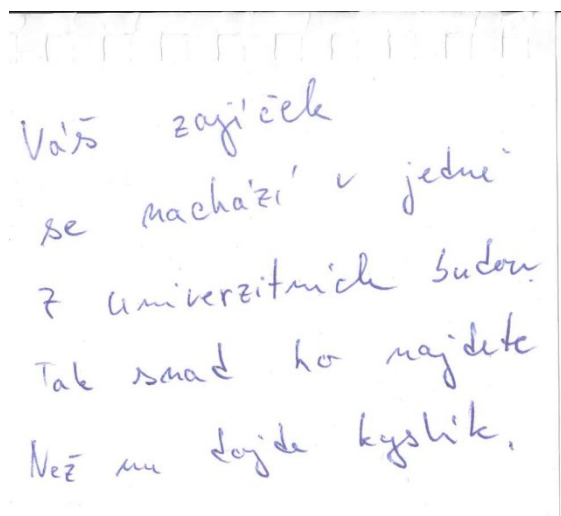 Váš zajíček
se nachází v jedné
z univerzitních budov.
Tak snad ho najdete
Než mu dojde kyslík.